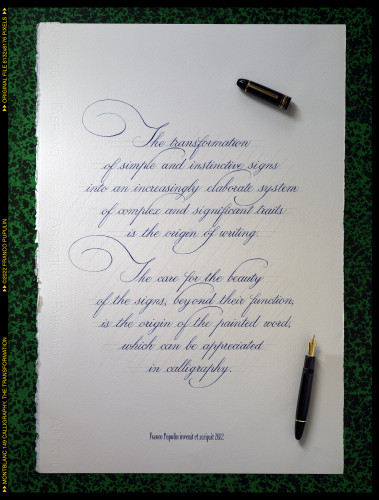 The transformation
of simple and instinctive signs
into an increasingly elaborate system
of complex and significant traits
is the origin of writing.
The care for the beauty
of the signs, beyond their function,
is the origin of the painted word,
which can be appreciated
in calligraphy.
Franco Pupulin invenit et scripsit 2022
MONTBLANC 149 CALLIGRAPHY, THE TRANSFORMATION
©2022 FRANCO PUPULIN
ORIGINAL FILE 6132x8176 PIXELS